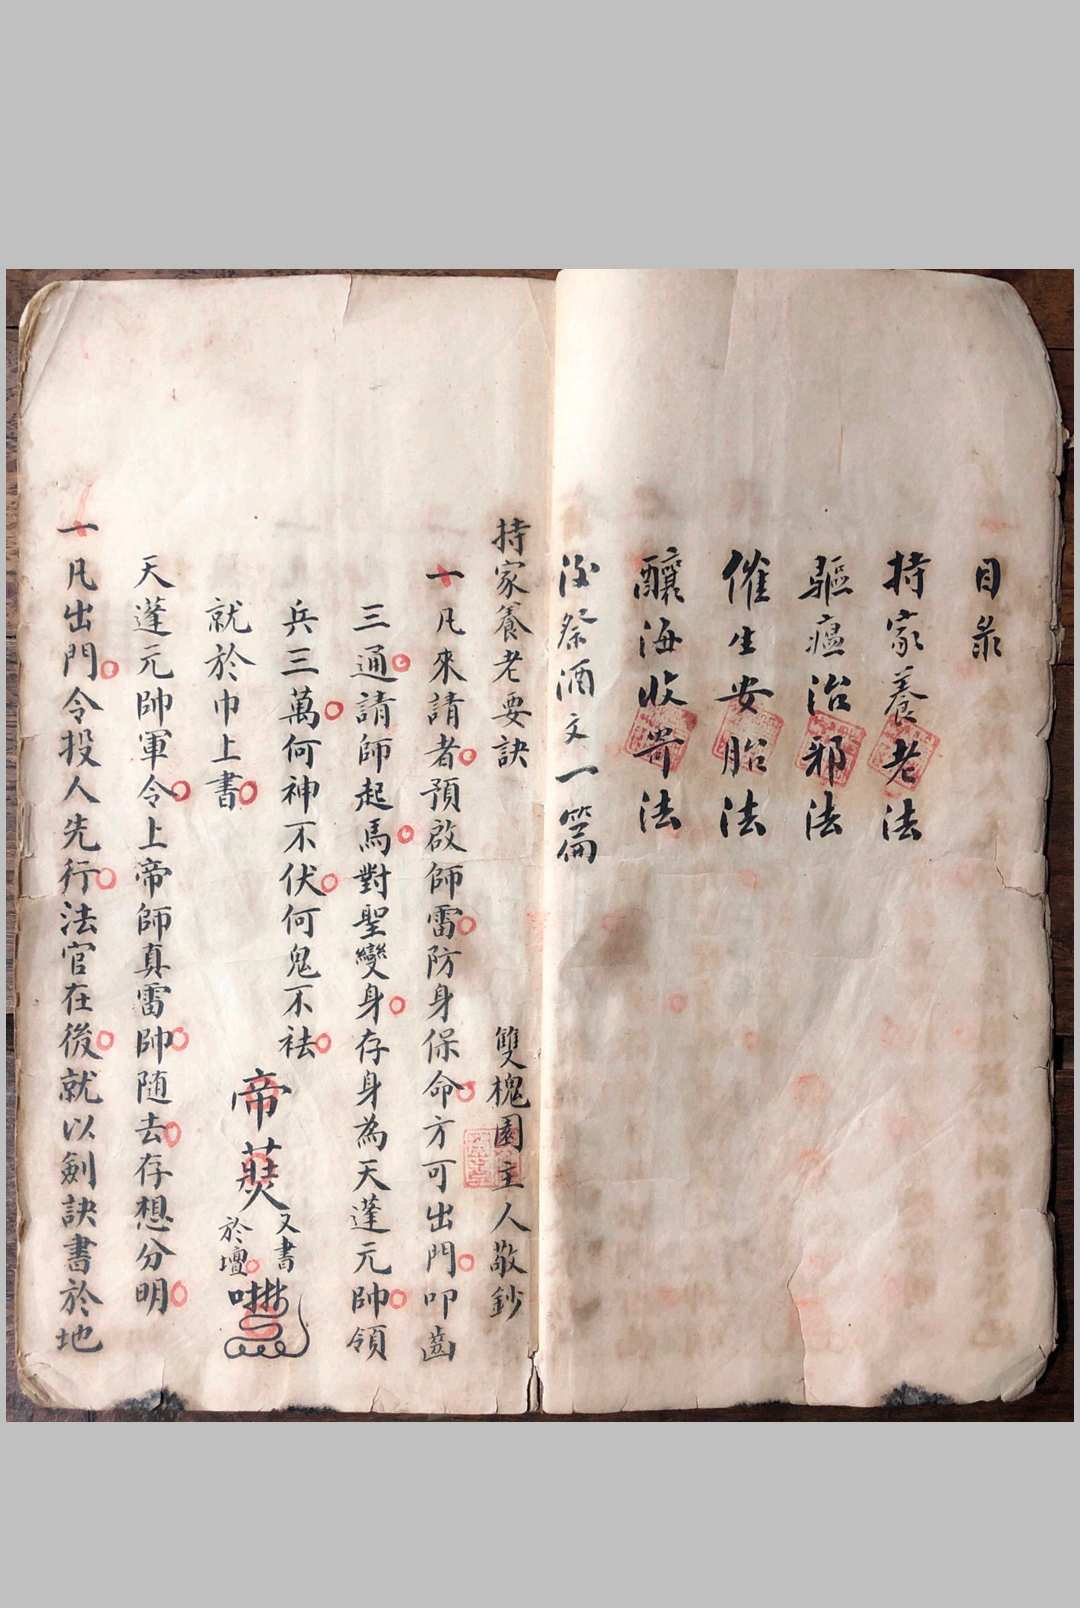 目录
持家養老法
驅瘟治邪法
催生安胎法
釀海收法
祭酒文一篇
持家養老要訣　雙槐園主人敬鈔
一凡來請者預啟師雷防身保命方可出門叩齒
三通請師起馬對聖變身存身為天蓬元帥領
兵三萬何神不伏何鬼不祛
就於巾上書
帝
又書
於壇
天蓬元帥軍令上帝師真雷帥随去存想分明
一凡出門令投人先行法官在後就以劍訣書於地